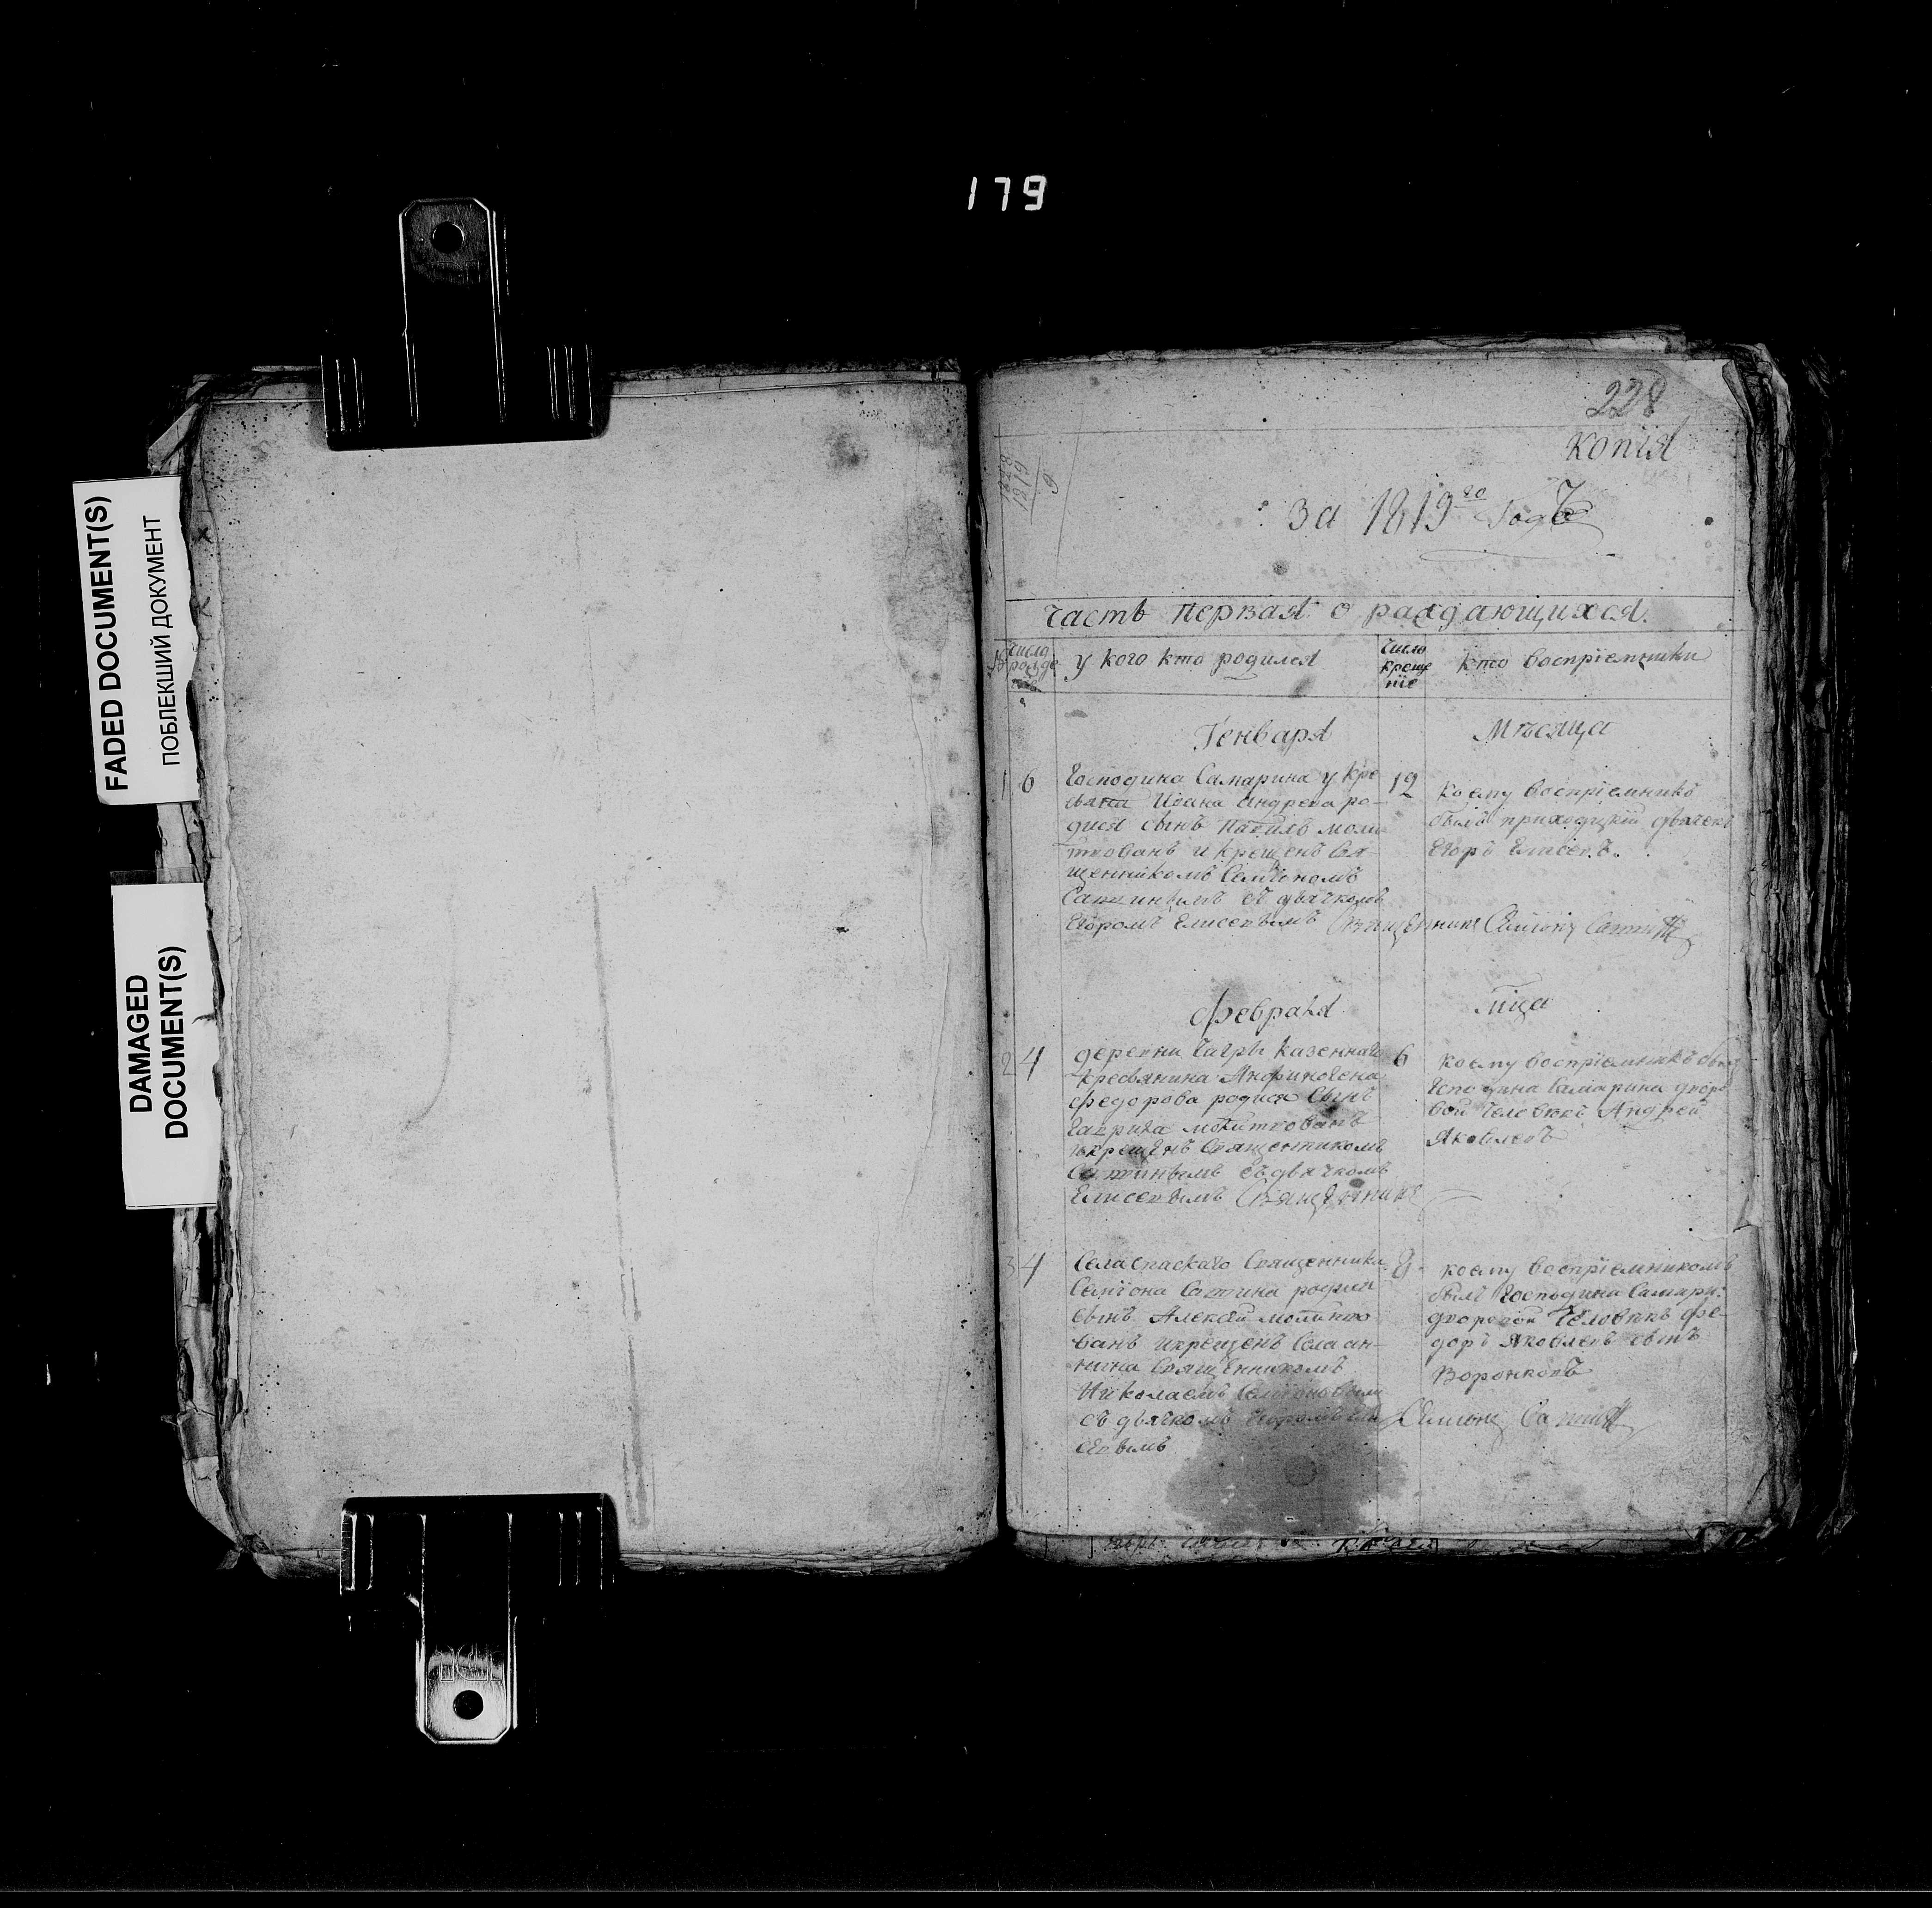 179
FADED DOCUMENT(S)
ПОБЛЕКШИЙ ДОКУМЕНТ
DAMAGED
DOCUMENT(S)
228
копiя
1828
1819
9
за 1819го Годъ
часть первая о раждающихся.
№
число рожде
у кого кто родился
Число креще нiе
кто воспрiемники
Генваря
Мѣсяца
1 6
Господина Самарина у кре
стьяна Ивана Андреева ро-
дился сынъ
тованъ и крещенъ Свя
щенникомъ Семiономъ
Сатинымъ съ дьячкомъ
Егоромъ Елисеевымъ Священникъ Симiонъ Сатинъ
12
коему воспрiемникъ
былъ приходцкiй дьячекъ
Егоръ Елисеевъ.
Февраля
мца
2 4
деревни казеннаго
крестьянина Анфиногена
Федорова родился Сынъ
Гаврила молитвованъ
икрещенъ Священникомъ
Сатинымъ съ дьячкомъ
Елисеевымъ Священникъ
6
коему воспрiемникъ былъ
Господина Самарина дворо
вой человѣкъ Андрей
Яковлевъ
3 4
Села Спаскаго Священника
Семiона Сатина родился
сынъ Алексей молитво
ванъ икрещенъ Села ан-
нина Священникомъ
Николаемъ Семiоновымъ
съ дьячкомъ Егоромъ Ели
сеевымъ
8
коему воспрiемникомъ
былъ Господина Самари.
дворовой Человѣкъ Фе-
доръ Яковлевъ сынъ
Воронковъ
Симiонъ Сатинъ